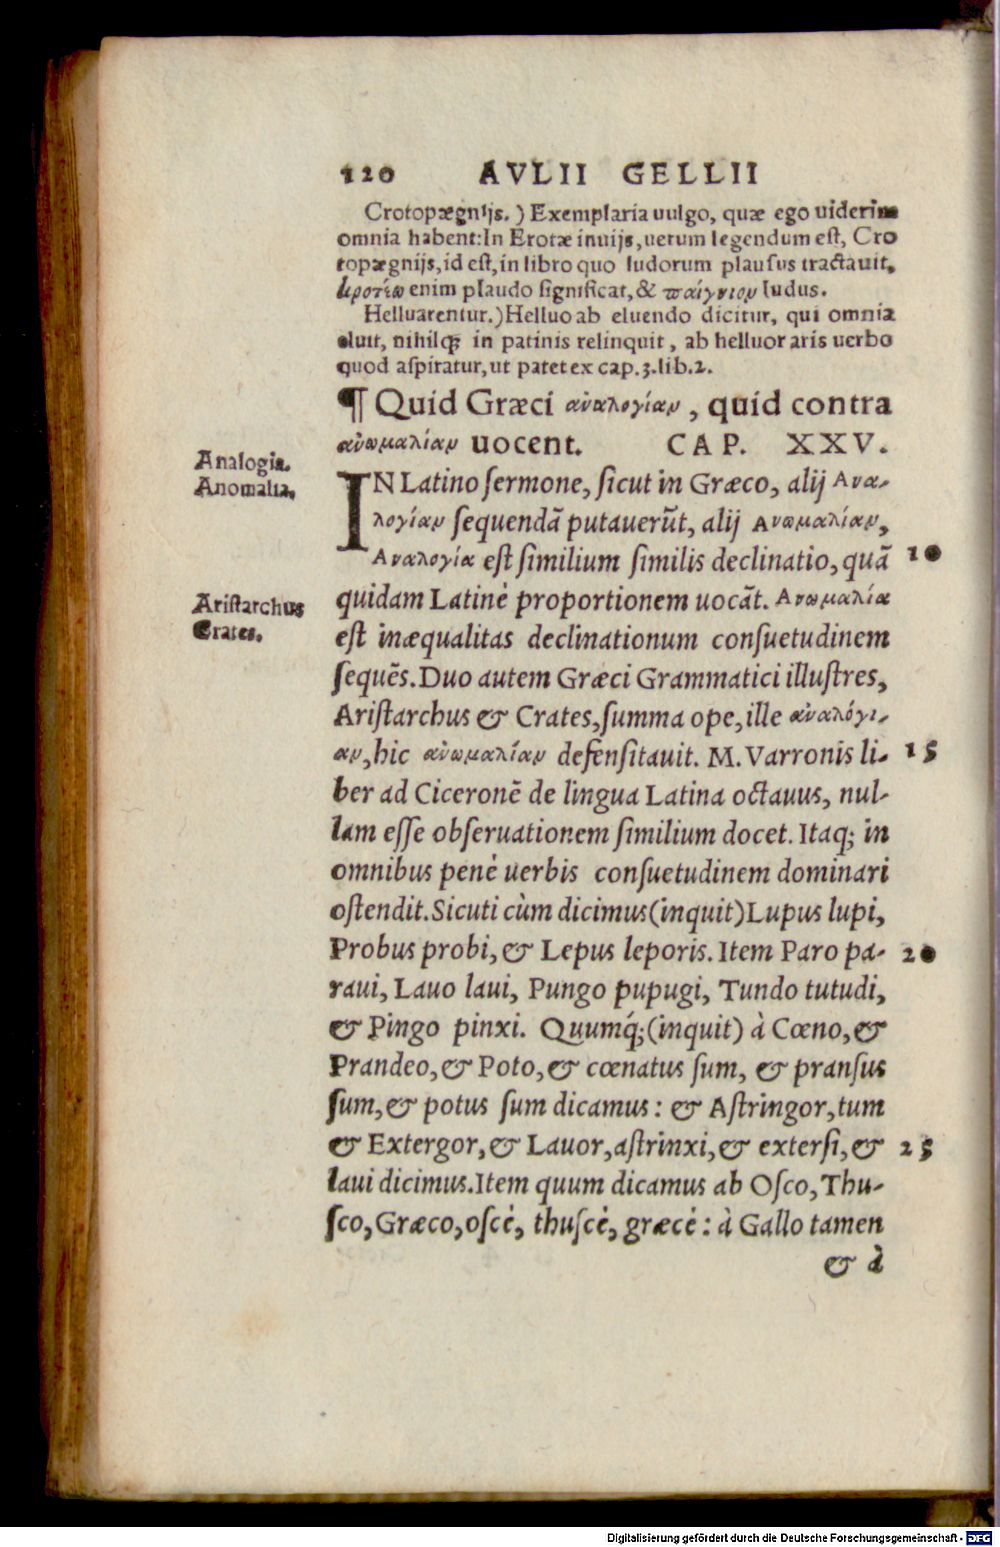 120 AVLII GELLII
Crotopægnijs.) Exemplaria uulgo, quæ ego uiderim
omnia habent: In Erotæ inuijs, uerum legendum est, Cro
topægnijs, id est, in libro quo ludorum plausus tractauit,
κροτέω enim plaudo significat, & παίγνιον ludus.
Helluarentur.) Helluo ab eluendo dicitur, qui omnia
eluit, nihilq; in patinis relinquit, ab helluor aris uerbo
quod aspiratur, ut patet ex cap. 3. lib. 2.
¶ Quid Græci ἀναλογίαν, quid contra
ἀνωμαλίαν uocent. CAP. XXV.
Analogia.
Anomalia.
IN Latino sermone, sicut in Græco, alij Ανα-
λογίαν sequendã putauerũt, alij Ανωμαλίαν,
Αναλογία est similium similis declinatio, quã 10
Aristarchus
Crates.
quidam Latinè proportionem uocãt. Ανωμαλία
est inæqualitas declinationum consuetudinem
sequẽs. Duo autem Græci Grammatici illustres,
Aristarchus & Crates, summa ope, ille ἀναλόγι-
αν, hic ἀνωμαλίαν defensitauit. M. Varronis li- 15
ber ad Ciceronẽ de lingua Latina octauus, nul-
lam esse obseruationem similium docet. Itaq; in
omnibus penè uerbis consuetudinem dominari
ostendit. Sicuti cùm dicimus (inquit) Lupus lupi,
Probus probi, & Lepus leporis. Item Paro pa- 20
raui, Lauo laui, Pungo pupugi, Tundo tutudi,
& Pingo pinxi. Quumq́; (inquit) à Cœno, &
Prandeo, & Poto, & cœnatus sum, & pransus
sum, & potus sum dicamus: & Astringor, tum
& Extergor, & Lauor, astrinxi, & extersi, & 25
laui dicimus. Item quum dicamus ab Osco, Thu-
sco, Græco, oscè, thuscè, græcè: à Gallo tamen
& à
Digitalisierung gefördert durch die Deutsche Forschungsgemeinschaft - DFG